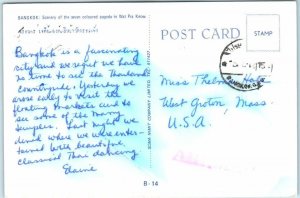 BANGKOK: Scenery of the seven coloured pagoda in Wat Pra Keow.
POST CARD
STAMP
Bangkok is a fascinating
city and we regret we have
no time to see the Thailand
countryside. Yesterday we
arose early to visit the
floating markets and to
see some of the many
temples. Last night we
dined where we were enter-
tained with beautiful,
classical Thai dancing
Elaine
Miss Thelma
West Groton, Mass.
U.S.A.
B-14